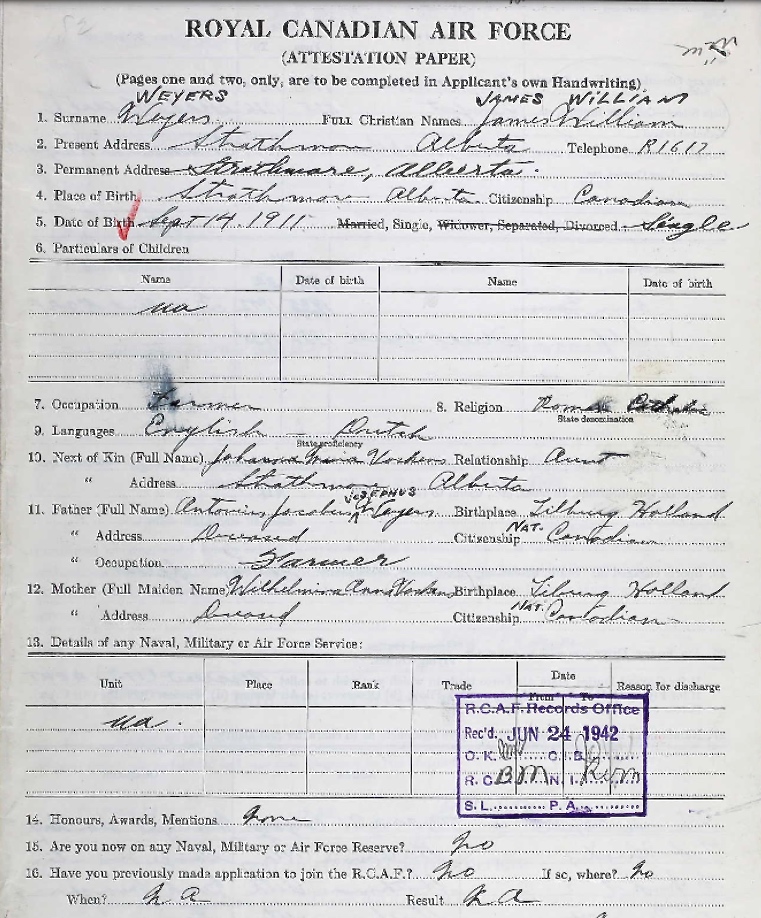 ROYAL CANADIAN AIR FORCE
(ATTESTATION PAPER)
(Pages one and two, only, are to be completed in Applicant's own Handwriting)
WEYERS JAMES WILLIAM
1. Surname Weyers FULL CHRISTIAN NAMES James William
2. Present Address Strathmore Alberta Telephone R1617
3. Permanent Address Strathmore, Alberta.
4. Place of Birth Strathmore Alberta Citizenship Canadian
5. Date of Birth Sept 14 1911 Married, Single, Widower, Separated, Divorced Single
6. Particulars of Children
Name Date of birth Name Date of birth
na
7. Occupation Farmer 8. Religion Roman Catholic
State denomination
9. Languages English - Dutch
State proficiency
10. Next of Kin (Full Name) Johanna Relationship Aunt
" Address Strathmore Alberta
JOSEPHUS
11. Father (Full Name) Antonius Jacobus Weyers Birthplace Tilburg Holland
" Address Deceased Citizenship NAT. Canadian
" Occupation Farmer
12. Mother (Full Maiden Name) Wilhelmina Anna Birthplace Tilburg Holland
" Address Deceased Citizenship NAT. Canadian
13. Details of any Naval, Military or Air Force Service:
Unit Place Rank Trade Date Reason for discharge
From To
na.
R.C.A.F. Records Office
Rec'd. JUN 24 1942
O.K. C.I.B.
R.C. BM N.I.
S.L. P.A.
14. Honours, Awards, Mentions None
15. Are you now on any Naval, Military or Air Force Reserve? No
16. Have you previously made application to join the R.C.A.F.? No If so, where? No
When? N A Result N A